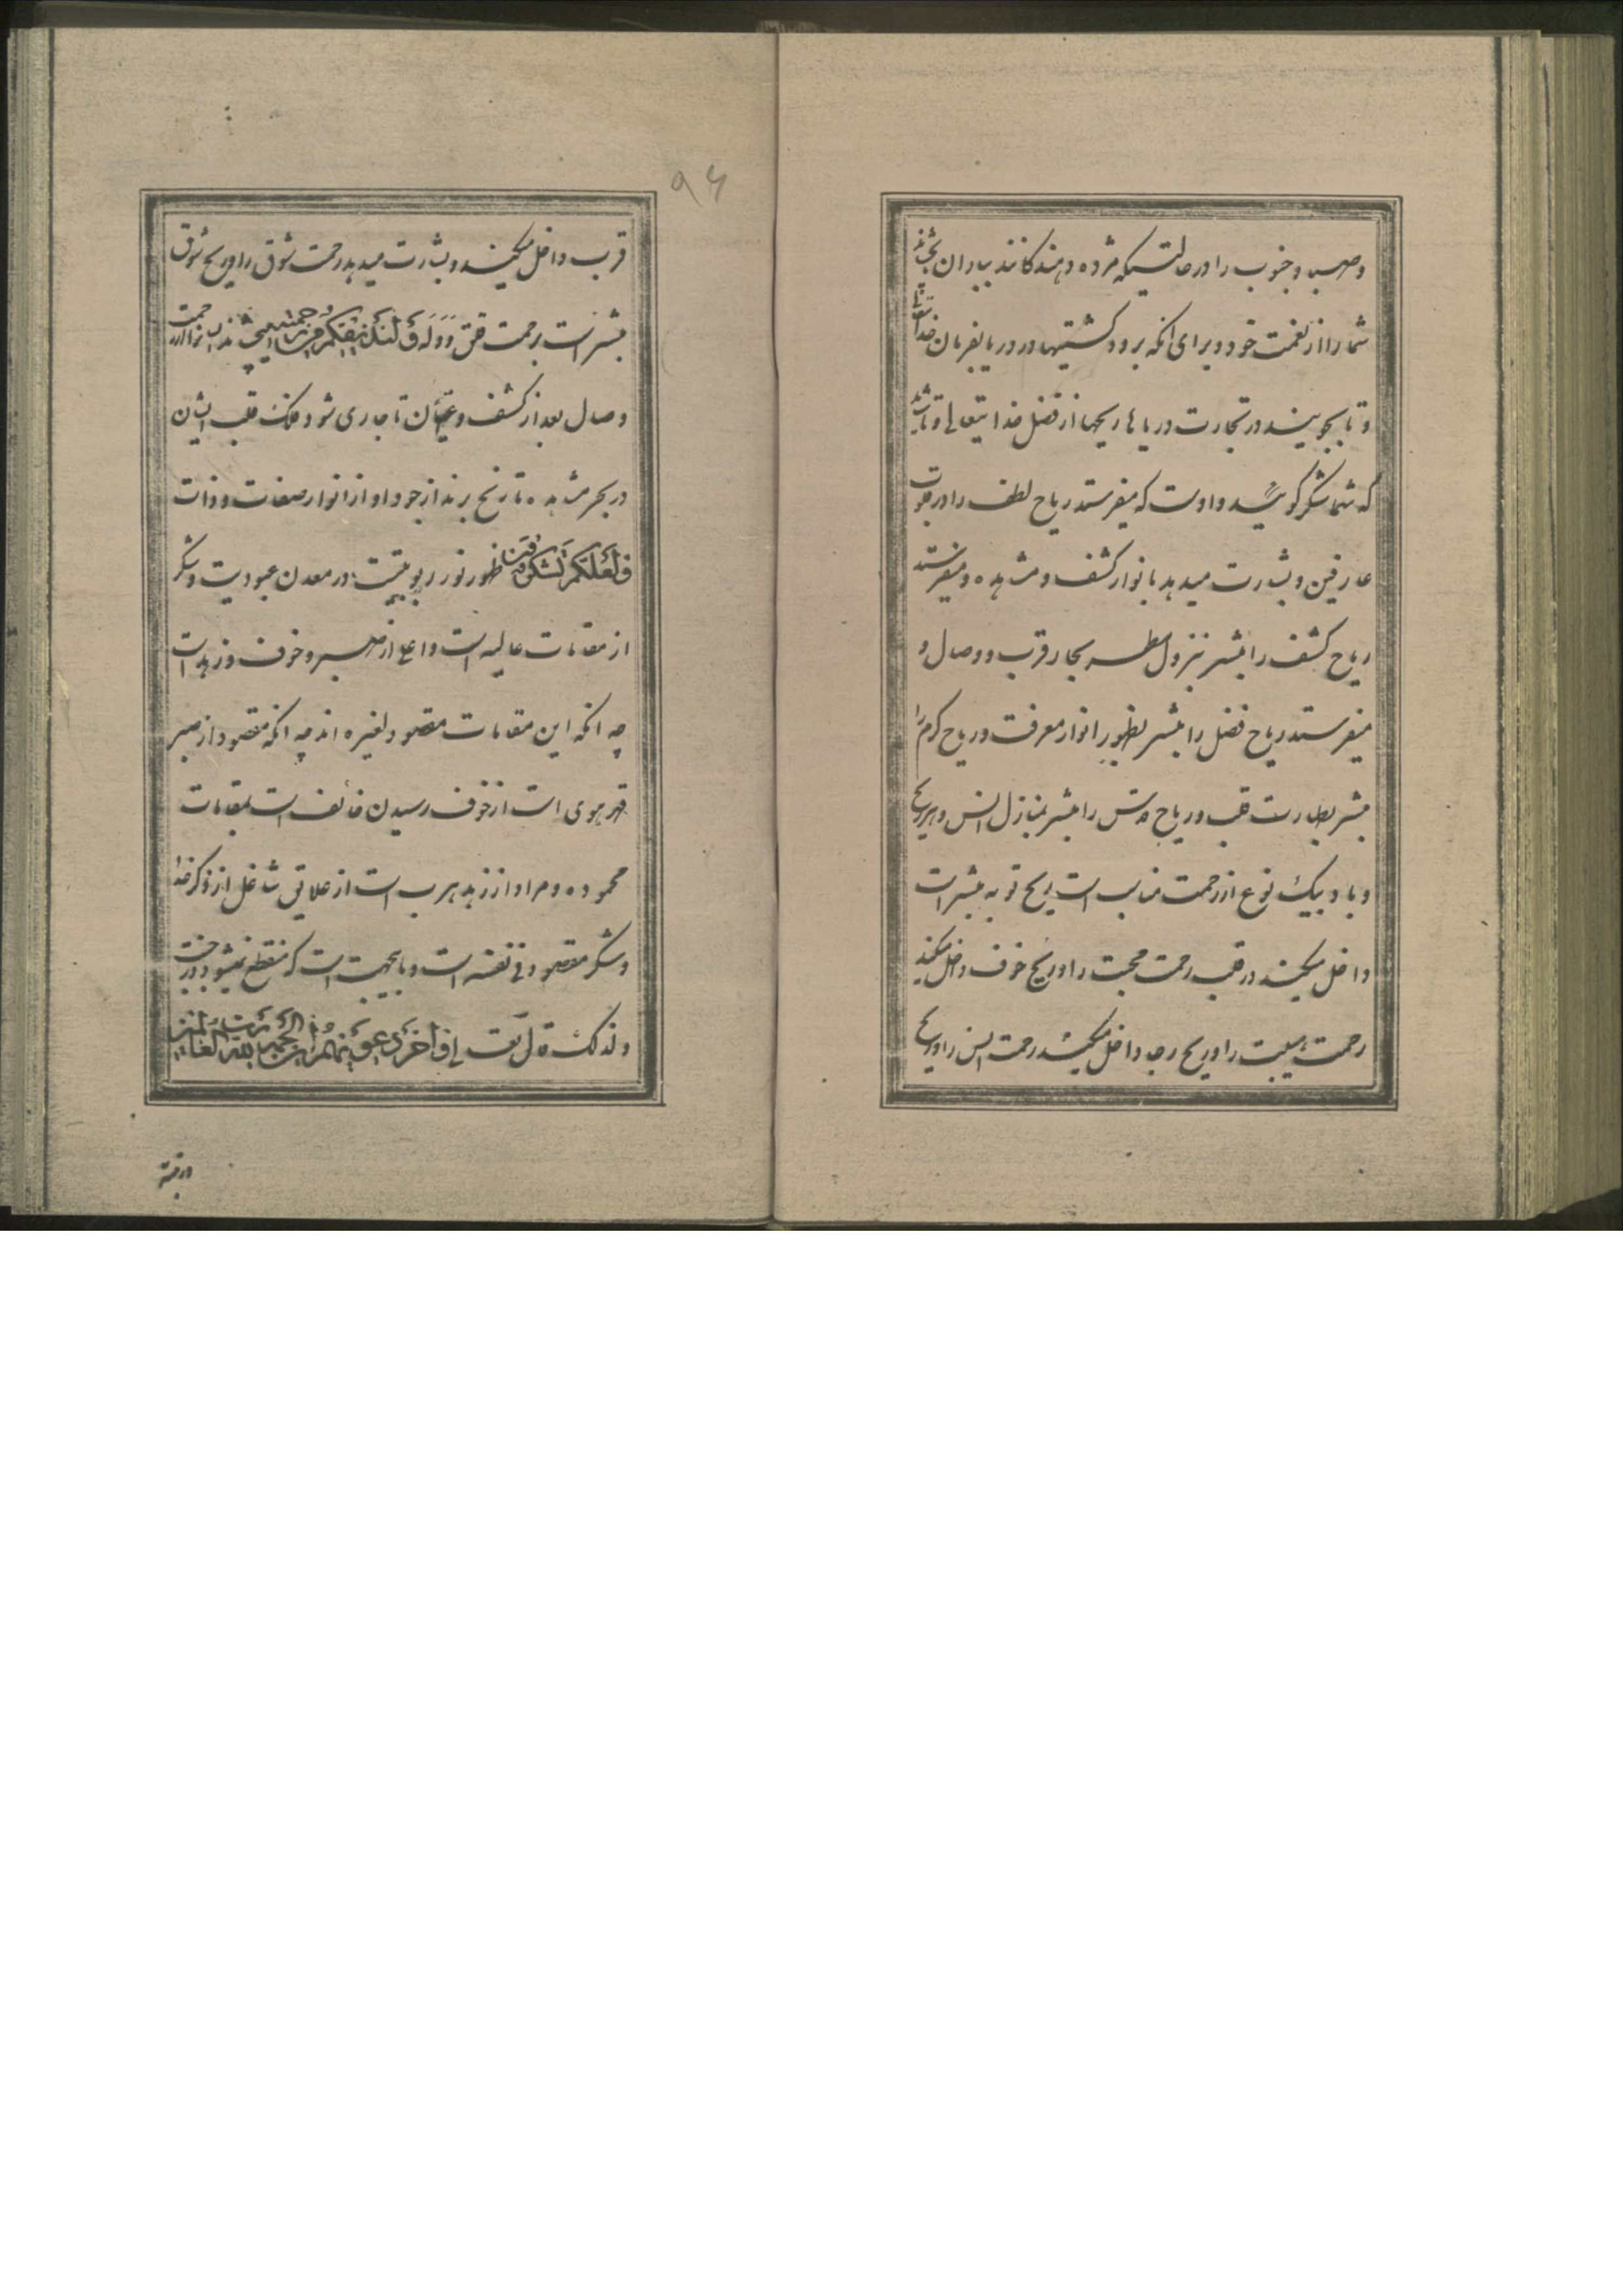 وصبا و جنوب را در حالتیکه مژده دهندکانند بباران بچشاند
شما را از نعمت خود و برای انکه برود کشتیها در دریا بفرمان خدایتعالی
و تا بجویند در تجارت دریاها ریحها از فضل خدایتعالی و تا شاید
که شما شکر کوئید و اوست که میفرستد ریاح لطف را در قلوب
عارفین و بشارت میدهد بانوار کشف و مشاهده و میفرستد
ریاح کشف را مبشر بنزول مطر بحار قرب و وصال و
میفرستد ریاح فضل را مبشر بظهور انوار معرفت و ریاح کرم را
مبشر بطهارت قلب و ریاح قدس را مبشر بمنازل انس و هر ریح
و باد بیک نوع از رحمت مناسب است ریح توبه مبشر است
داخل میکند در قلب رحمت محبت را و ریح خوف داخل میکند
رحمت هیبت را و ریح رجا داخل میکند رحمت انس را و ریح
۹۶
قرب داخل میکند و بشارت میدهد رحمت شوق را و ریح شوق
مبشر است برحمت قوله وَلِيُذِيقَكُمْ مِنْ رَحْمَتِهِ
وصال بعد از کشف و عیان تا جاری شود فلک قلب ایشان
در بحر مشاهده تا ریح برند از جود او از انوار صفات و ذات
وَلَعَلَّكُمْ تَشْكُرُونَ ظهور نور ربوبیت در معدن عبودیت و شکر
از مقامات عالیه است و اعلی از صبر و خوف و زهد است
چه انکه این مقامات مقصود لغیره اند چه انکه مقصود از صبر
قهر هوی است از خوف رسیدن خائف است بمقامات
محموده و مراد از زهد هرب است از علایق شاغل از ذکر خدا
و شکر مقصود فی نفسه است و باینجهت است که منقطع نمیشود در جنت
و لذلک قال تعالی وَآخِرُ دَعْوَاهُمْ أَنِ الْحَمْدُ لِلّٰهِ رَبِّ الْعَالَمِينَ